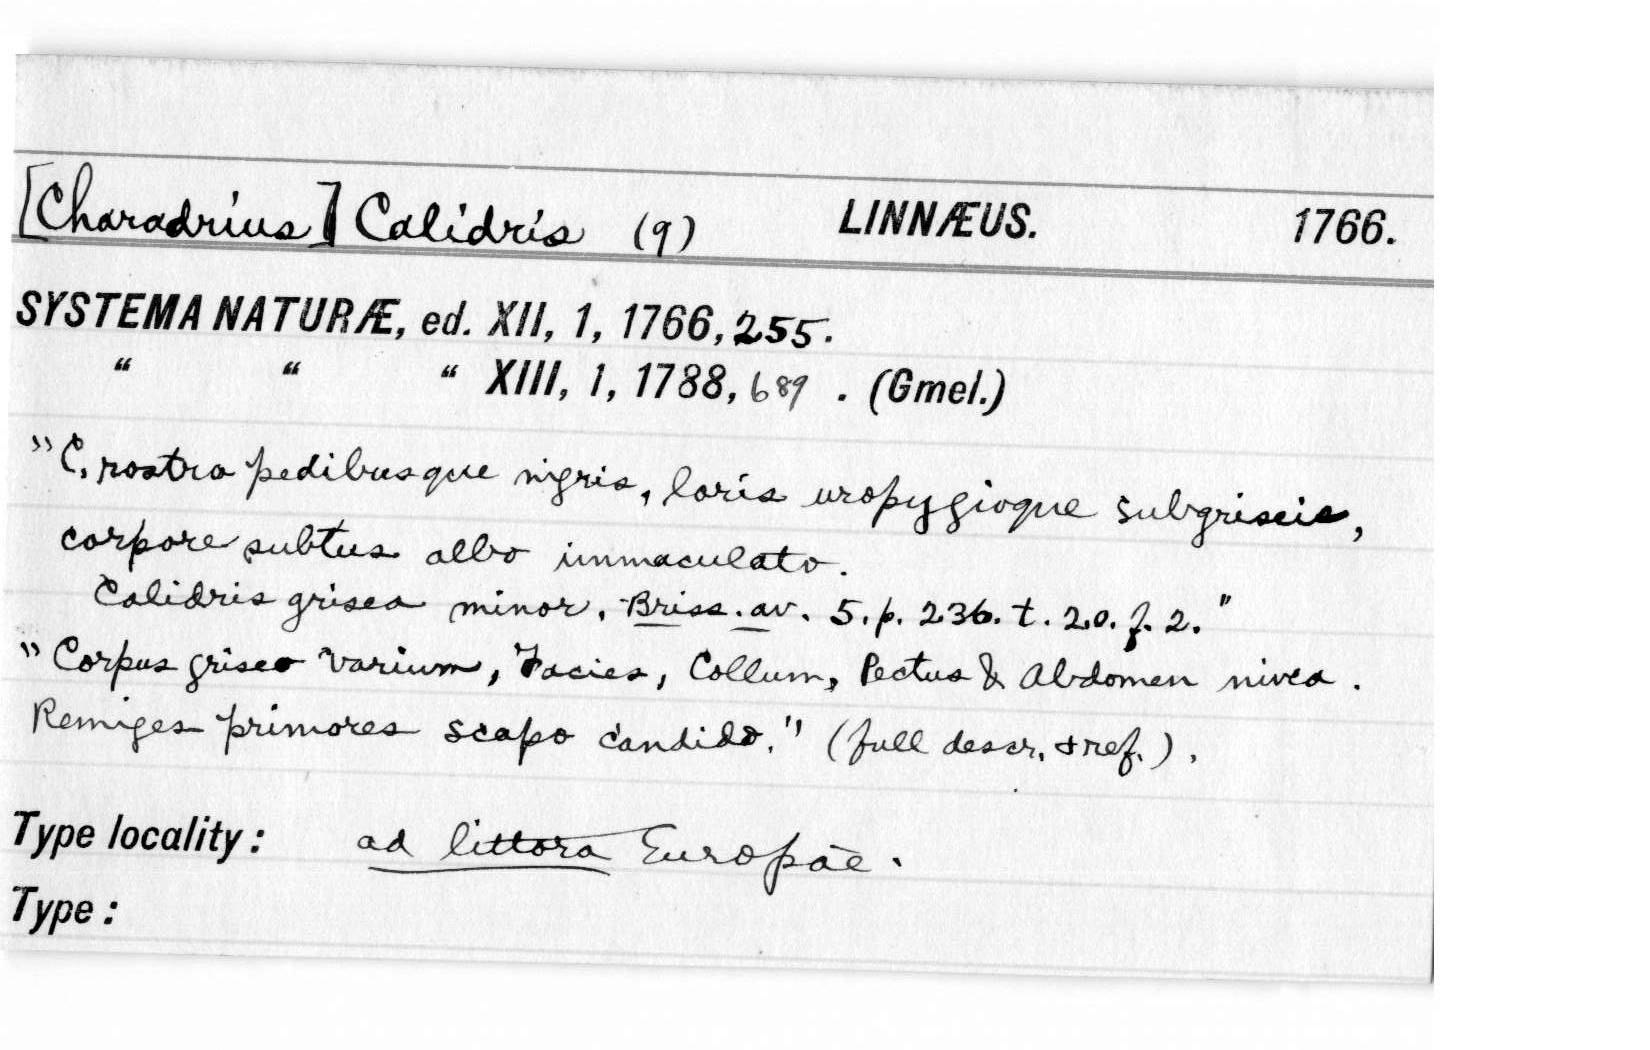 [Charadrius] Calidris (9) LINNÆUS. 1766.
SYSTEMA NATURÆ, ed. XII, 1, 1766, 255.
“ “ “ XIII, 1, 1788, 689 . (Gmel.)
"C. rostro pedibusque nigris, loris uropygioque subgriseis,
corpore subtus albo immaculato.
Calidris grisea minor, Briss. av. 5. p. 236. t. 20. f. 2."
"Corpus griseo varium, Facies, Collum, Pectus & Abdomen nivea.
Remiges primores scapo candido." (full descr. & ref.).
Type locality: ad littora Europae.
Type: